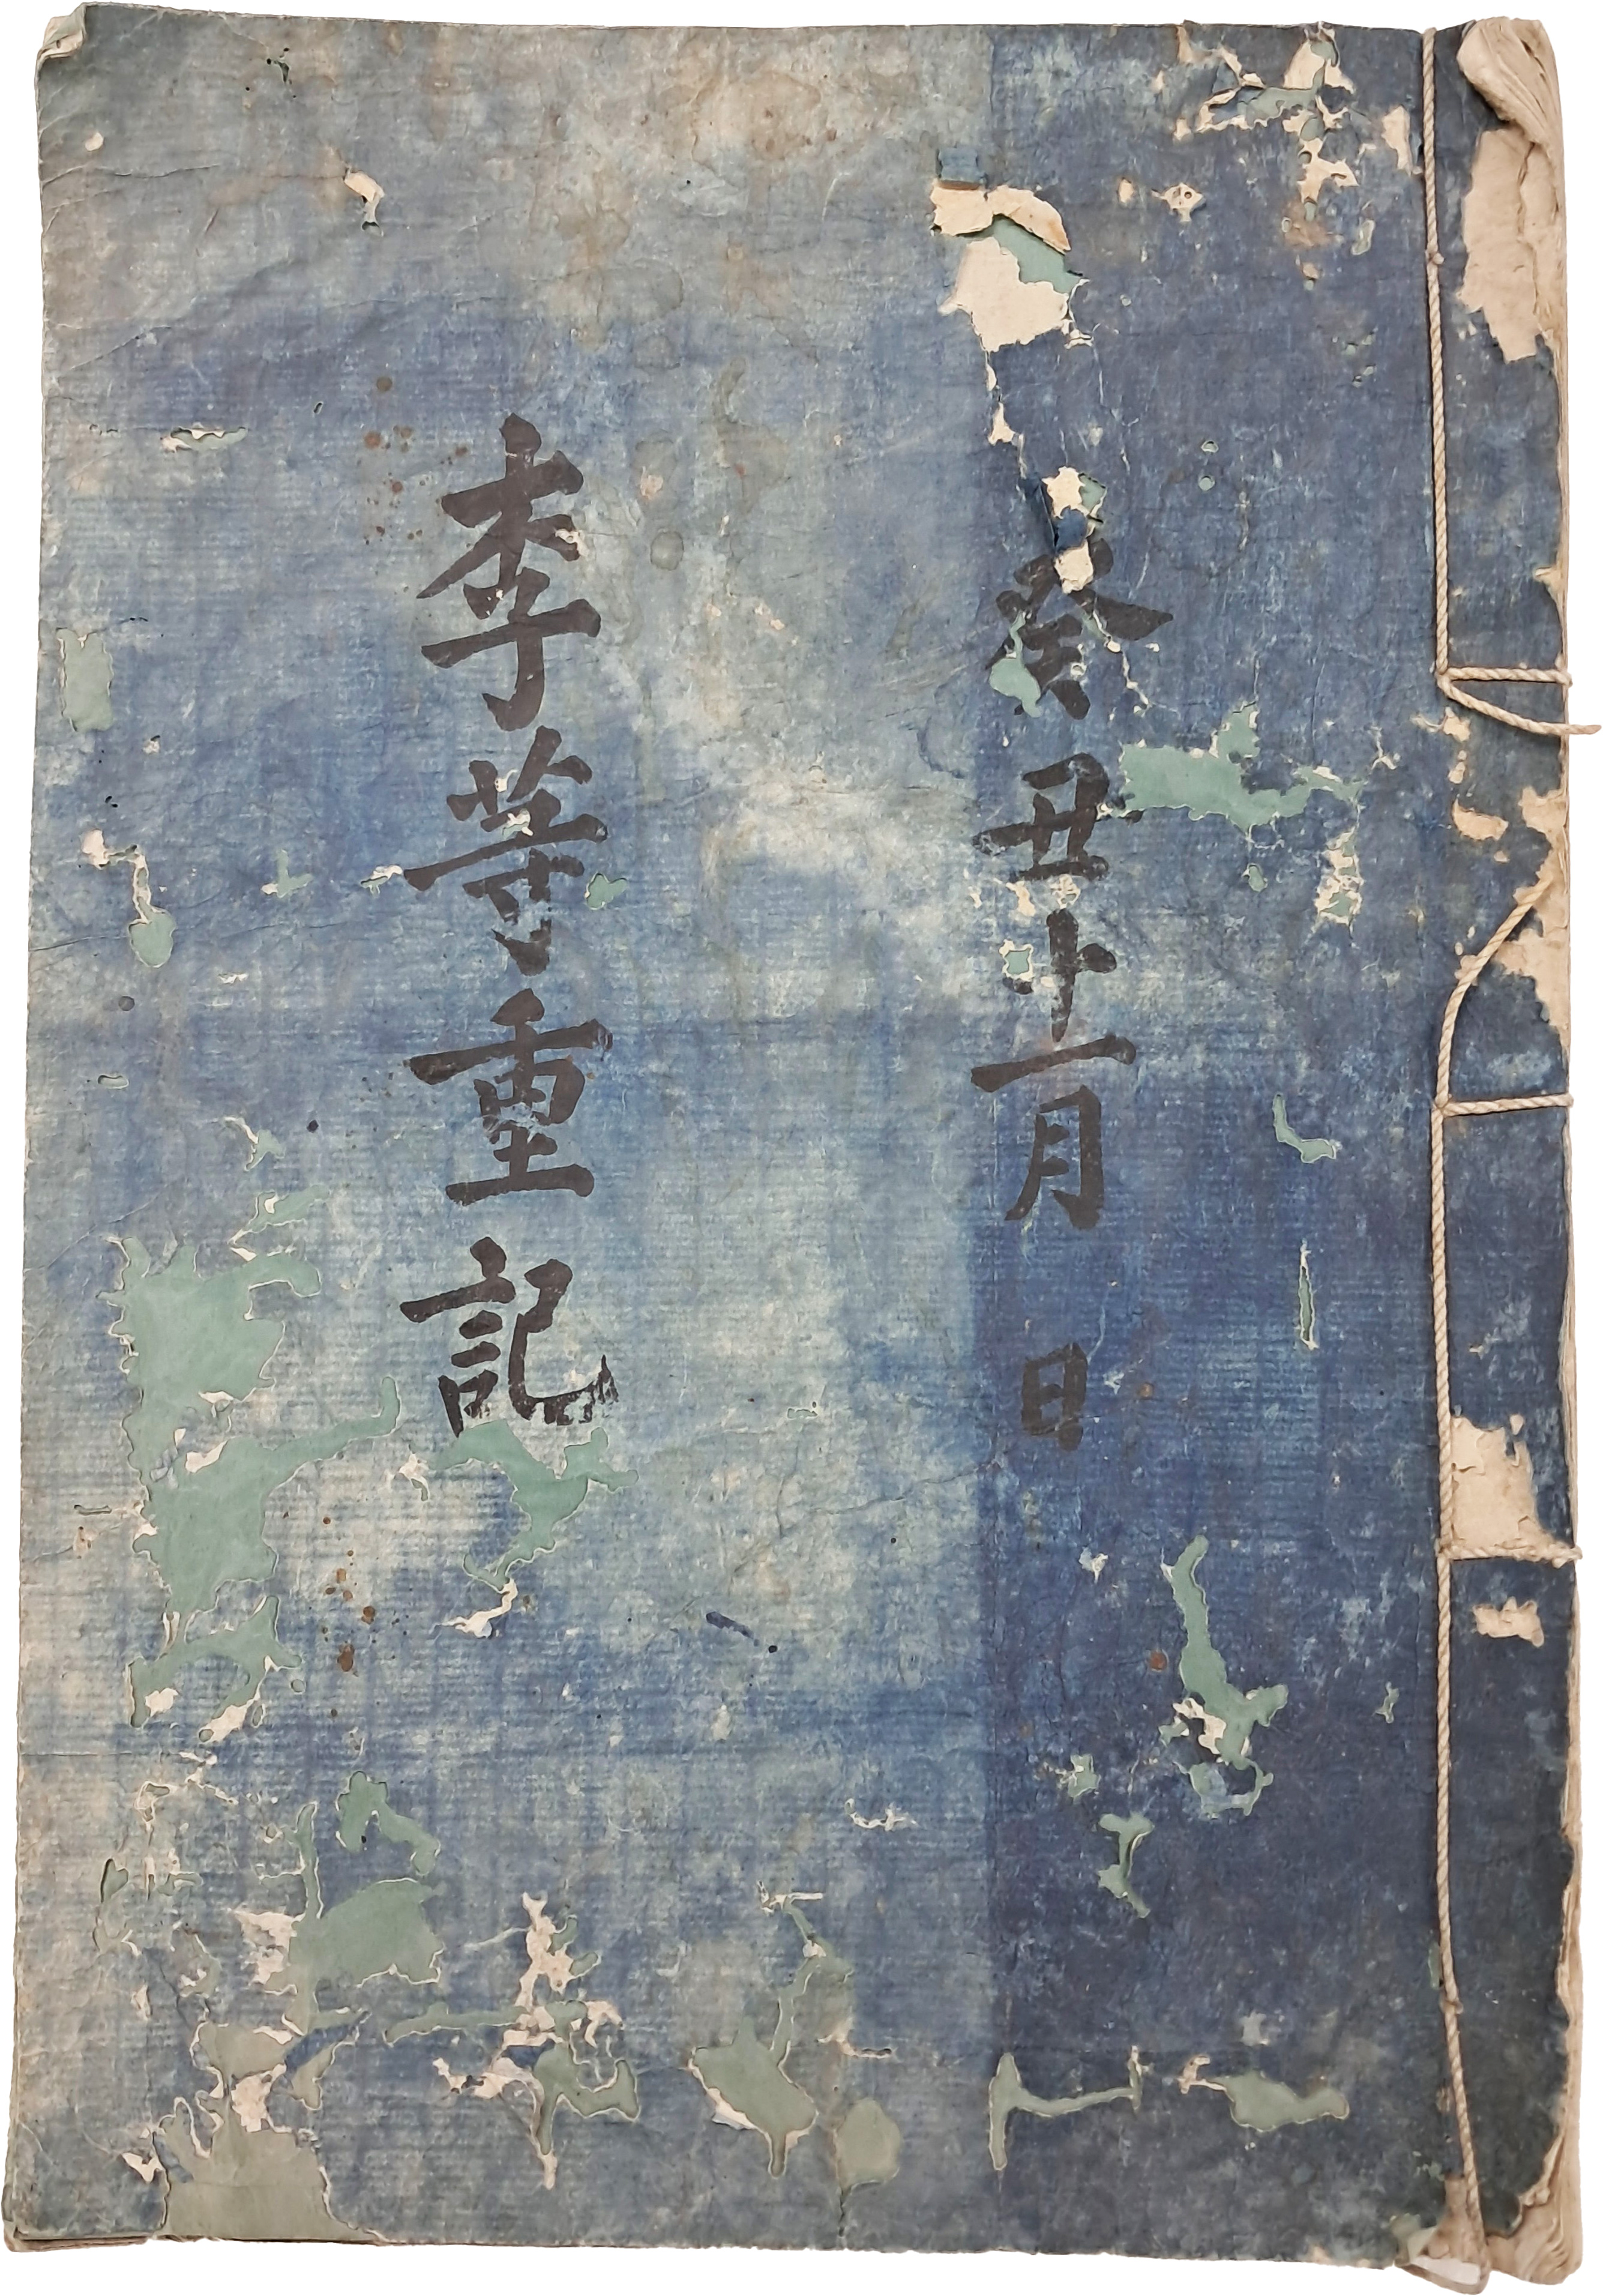 癸丑十一月 日
李等重記